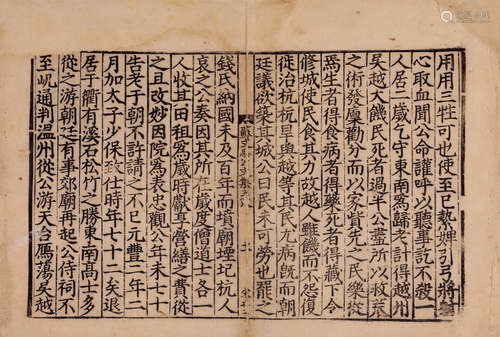 用用三牲可也使至已縶婢引弓將
心取血聞公命讙呼以聽事訖不殺一
人居三歲乞守東南爲歸老計得越州
吳越大饑民死者過半公盡所以救荒
之術發廩勸分而以家貲先之民樂從
焉生者得食病者得藥死者得藏下令
修城使民食其力故越人雖饑而不怨復
徙治杭杭旱與越等其民尤病旣而朝
廷議欲築其城公曰民未可勞也罷之
錢氏納國未及百年而墳廟堙圮杭人
哀之公奏因其所在歲度僧道士各一
人收其田租爲歲時獻享營繕之費從
之且改妙因院爲表忠觀公年未七十
告老于朝不許請之不已元豐二年二
月加太子少保致仕時年七十二矣退
居于衢有溪石松竹之勝東南高士多
從之游朝廷有事郊廟再起公侍祠不
至屼通判溫州從公游天台鴈蕩吳越